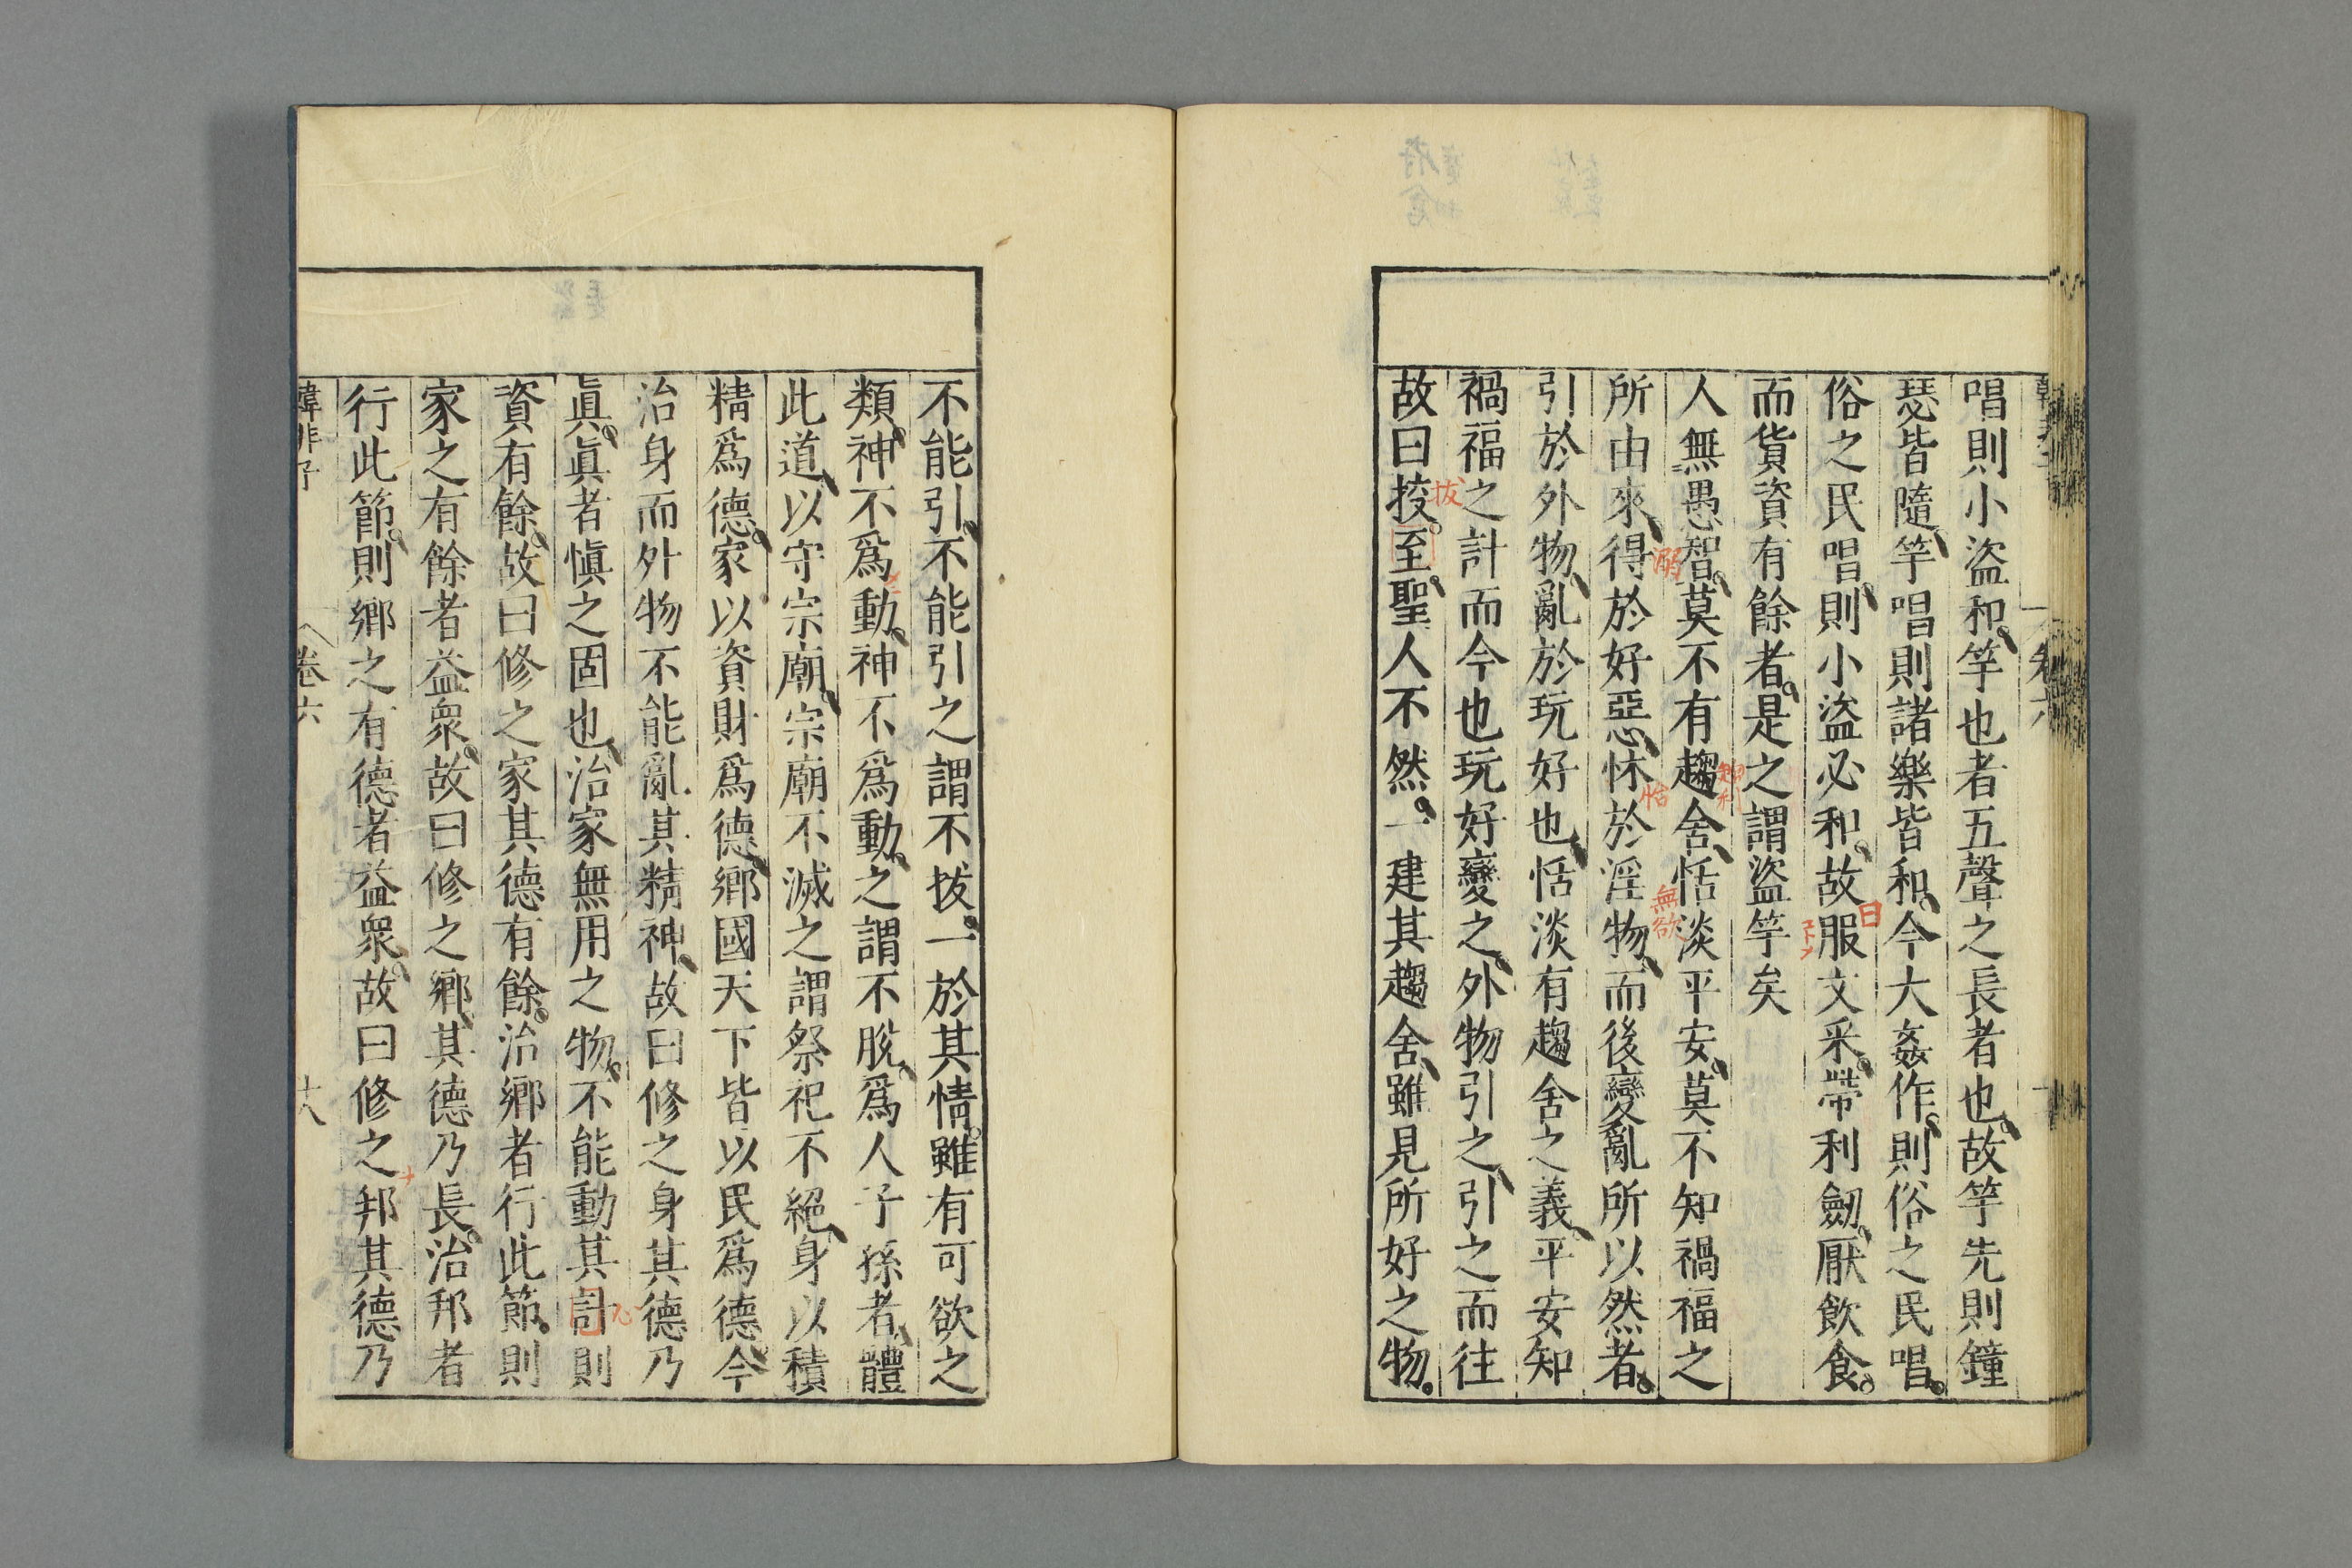 唱則小盜和竽也者五聲之長者也故竽先則鐘
瑟皆隨竽唱則諸樂皆和今大姦作則俗之民唱
俗之民唱則小盜必和故服文采帶利劒厭飲食
曰
而貨資有餘者是之謂盜竽矣
人無愚智莫不有趨舍恬淡平安莫不知禍福之
無欲
所由來得於好惡怵於淫物而後變亂所以然者
引於外物亂於玩好也恬淡有趨舍之義平安知
禍福之計而今也玩好變之外物引之引之而往
故曰挍至聖人不然一建其趨舍雖見所好之物
拔
不能引不能引之謂不拔一於其情雖有可欲之
類神不爲動神不爲動之謂不脫爲人子孫者體
此道以守宗廟宗廟不滅之謂祭祀不絕身以積
精爲德家以資財爲德鄉國天下皆以民爲德今
治身而外物不能亂其精神故曰修之身其德乃
眞眞者愼之固也治家無用之物不能動其計則
資有餘故曰修之家其德有餘治鄉者行此節則
家之有餘者益衆故曰修之鄉其德乃長治邦者
行此節則鄉之有德者益衆故曰修之邦其德乃
韓非子 卷六 十八